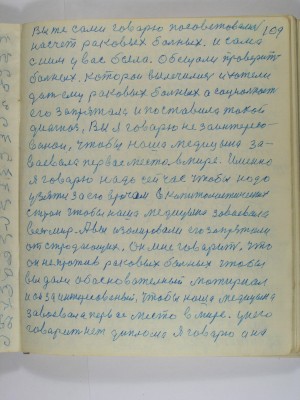 Вы же сами говорю посоветовали 109
насчет раковых болных. и сама
слим у вас была. Обещали проверить
болных. которои вылечились и хотели
дать ему раковых болных а
его запрятали и поставила такой
диагноз, Вы я говорю не заинтересо-
ваной, чтобы наша медицина за-
ваевала первае место в мире. Именно
я говорю надо сей час чтобы надо
взяти за со врачам
чтобы наша медицина заваевала
Весь мир. А вы изолировали его запрятали
от страдающих. Он мне говорит. что
он непротив раковых болных чтобы
выдали обасновательный матириал
и он заинтересованый. чтобы наша медицина
завоевала первае место в мире. у него
говорит нет диплома я говорю а на